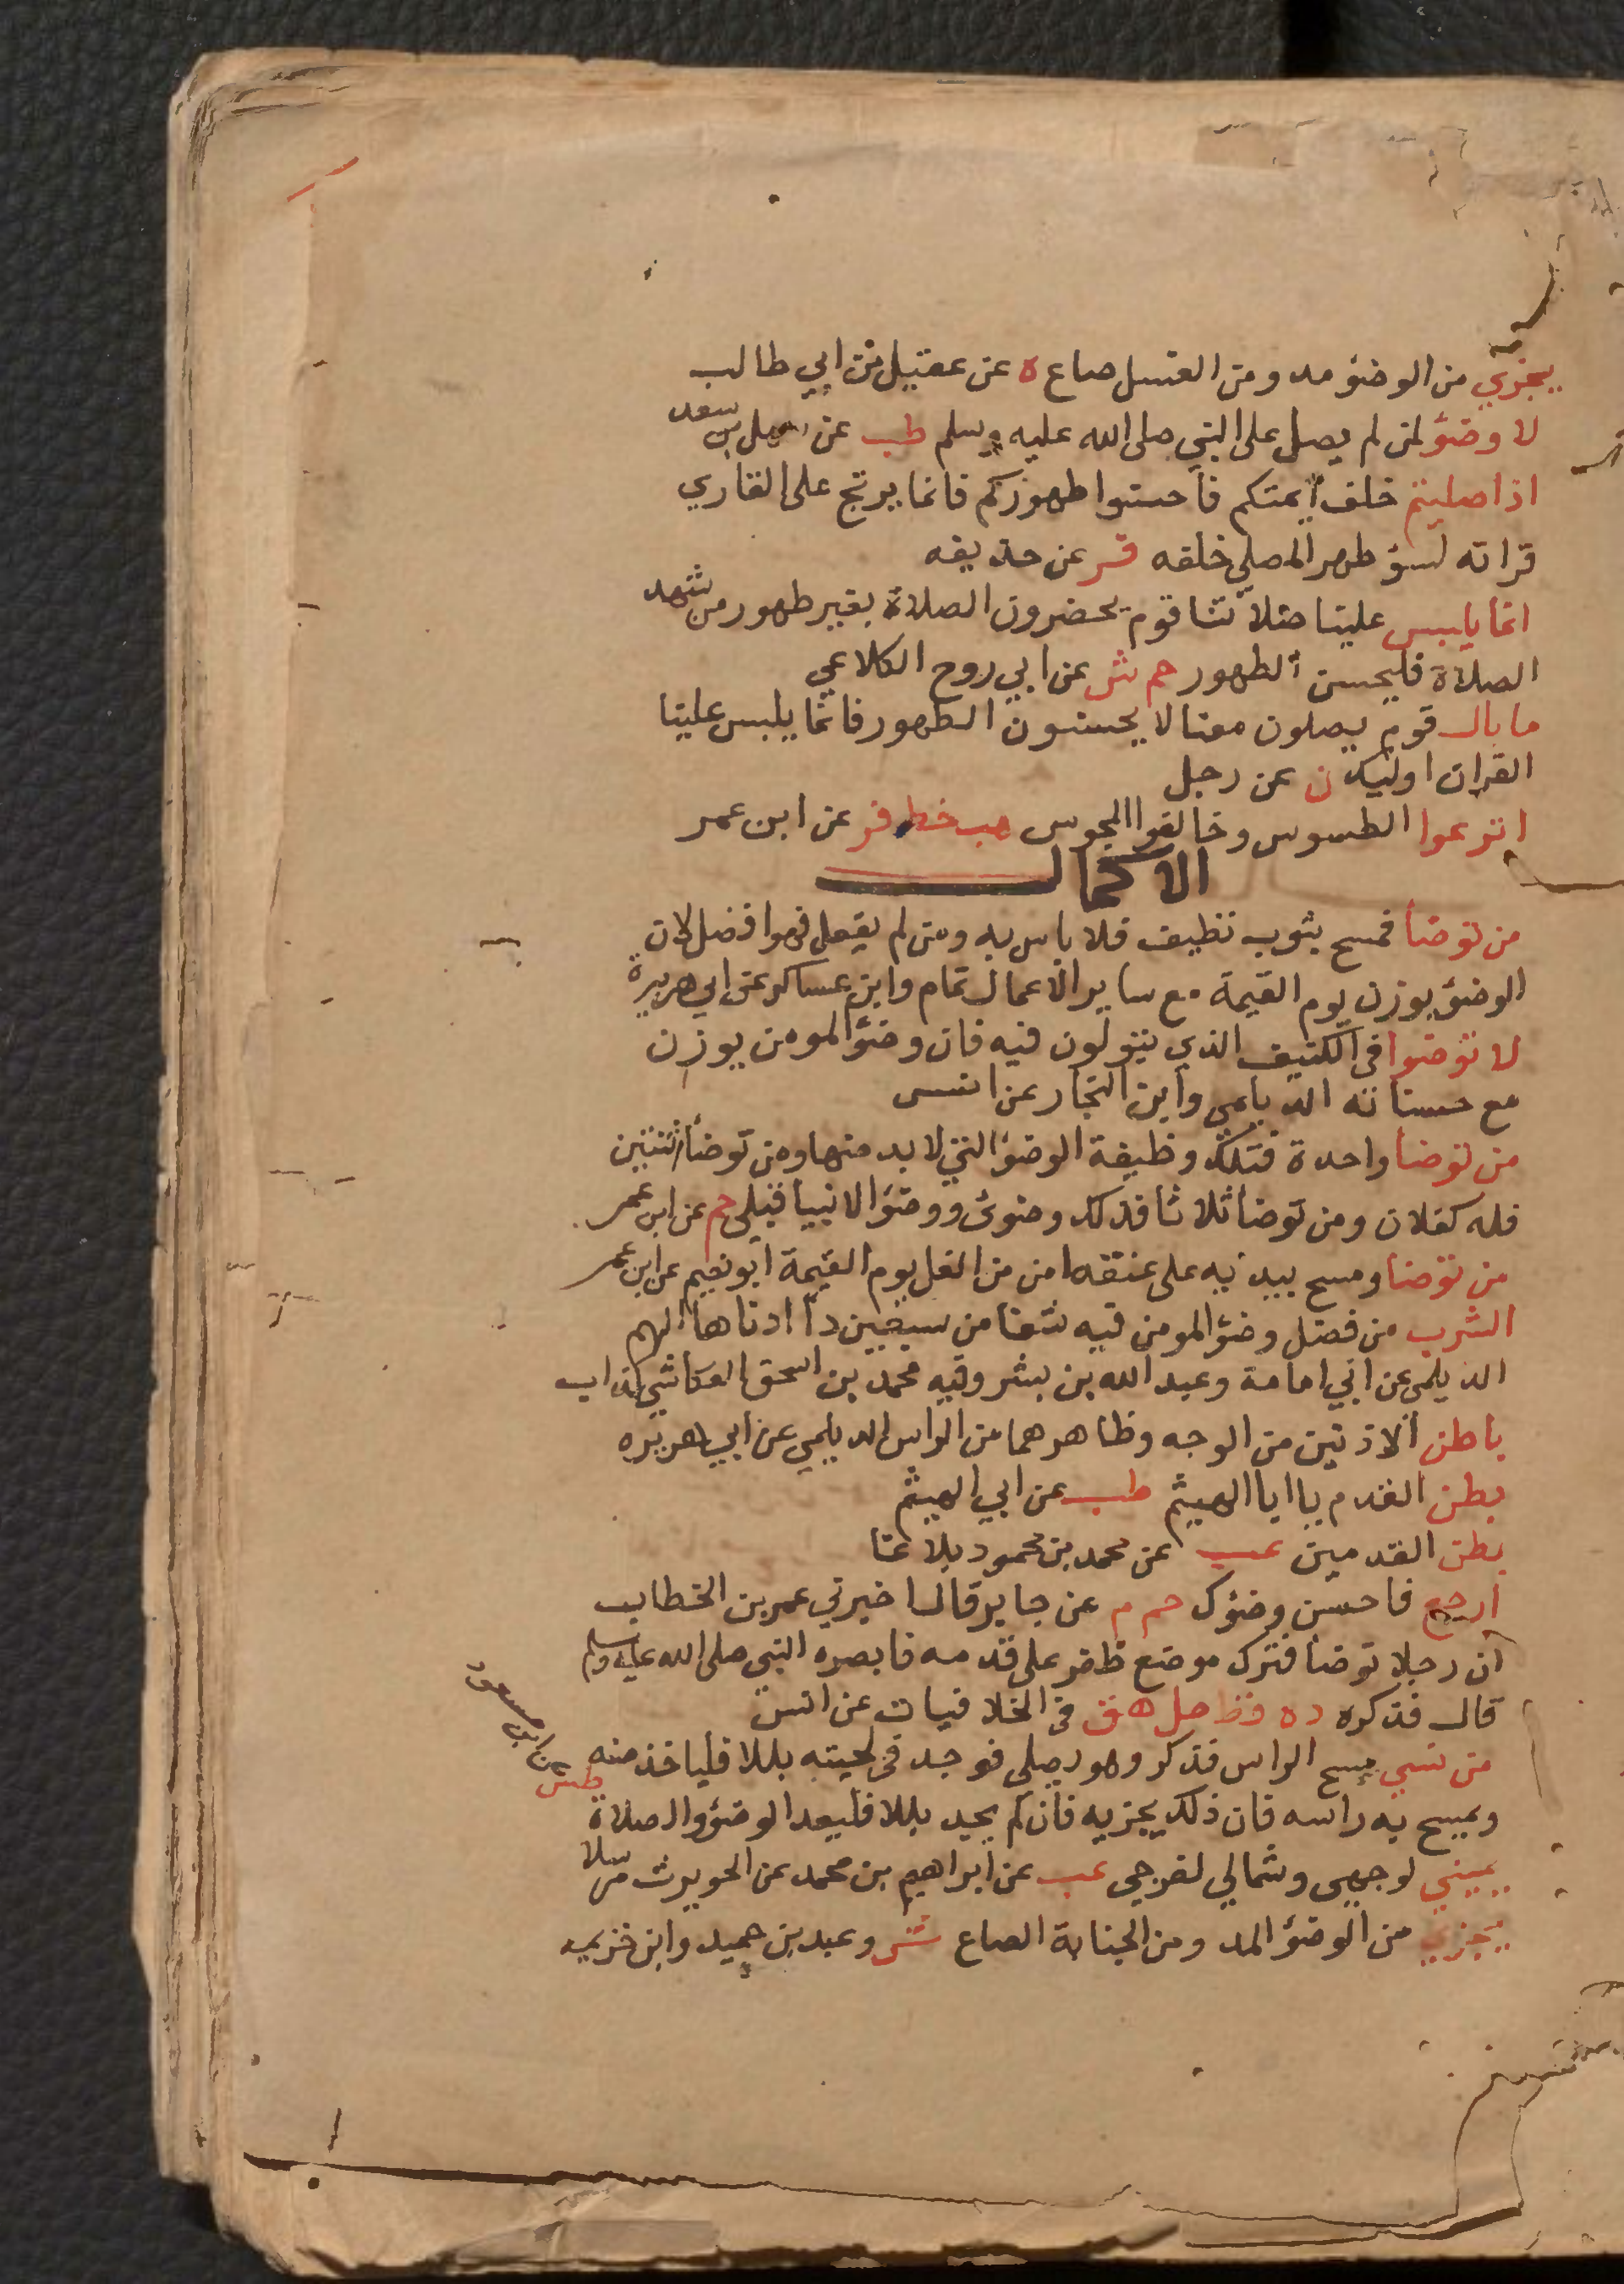 يجزي من الوضوء مد ومن الغسل صاع ه عن عقيل بن ابي طالب
لا وضوء لمن لم يصل على النبي صلى الله عليه وسلم طب عن سهل بن سعد
اذا صليتم خلف ايمتكم فاحسنوا طهوركم فانما يرتج على القاري
قراته لسؤ طهر المصلي خلفه فر عن حذيفه
انما يلبس علينا صلاتنا قوم يحضرون الصلاة بغير طهور من شهد
الصلاة فليحسن الطهور حم ش عن ابي روح الكلاعي
ما بال قوم يصلون معنا لا يحسنون الطهور فانما يلبس علينا
القران اوليك ن عن رجل
اترعوا الطسوس وخالفوا المجوس هب خط فر عن ابن عمر
الاكمال
من توضأ فمسح بثوب نظيف فلا باس به ومن لم يفعل فهو افضل لان
الوضؤ يوزن يوم القيمة مع ساير الاعمال تمام وابن عساكر عن ابي هريرة
لا توضوا في الكنيف الذي تبولون فيه فان وضؤ المومن يوزن
مع حسناته الديلمي وابن النجار عن انس
من توضأ واحدة فتلك وظيفة الوضؤ التي لا بد منها ومن توضأ ثنتين
فله كفلان ومن توضأ ثلاثا فذلك وضوئ ووضؤ الانبيا قبلي حم عن ابن عمر
من توضأ ومسح بيديه على عنقه امن من الغل يوم القيمة ابو نعيم عن ابن عمر
الشرب من فضل وضؤ المومن فيه شفا من سبعين دأ ادناها الهم
الديلمي عن ابي امامة وعبد الله بن بشر وفيه محمد بن اسحق العكاشي كذاب
باطن الاذنين من الوجه وظاهرهما من الراس الديلمي عن ابي هريره
بطن القدم يا ابا الهيثم طب عن ابي الهيثم
بطن القدمين عب عن محمد بن محمود بلاغا
ارجع فاحسن وضؤك حم م عن جابر قال اخبرني عمر بن الخطاب
ان رجلا توضأ فترك موضع ظفر على قدمه فابصره النبي صلى الله عليه وسلم
قال فذكره د ه قط حل هق في الخلافيات عن انس
من نسي مسح الراس فذكر وهو يصلي فوجد في لحيته بللا فلياخذ منه
ويمسح به راسه فان ذلك يجزيه فان لم يجد بللا فليعد الوضؤ والصلاة
طس عن ابن مسعود
يميني لوجهي وشمالي لفرجي عب عن ابراهيم بن محمد عن الحويرث مرسلا
يجزي من الوضؤ المد ومن الجنابة الصاع ش وعبد بن حميد وابن خزيمه